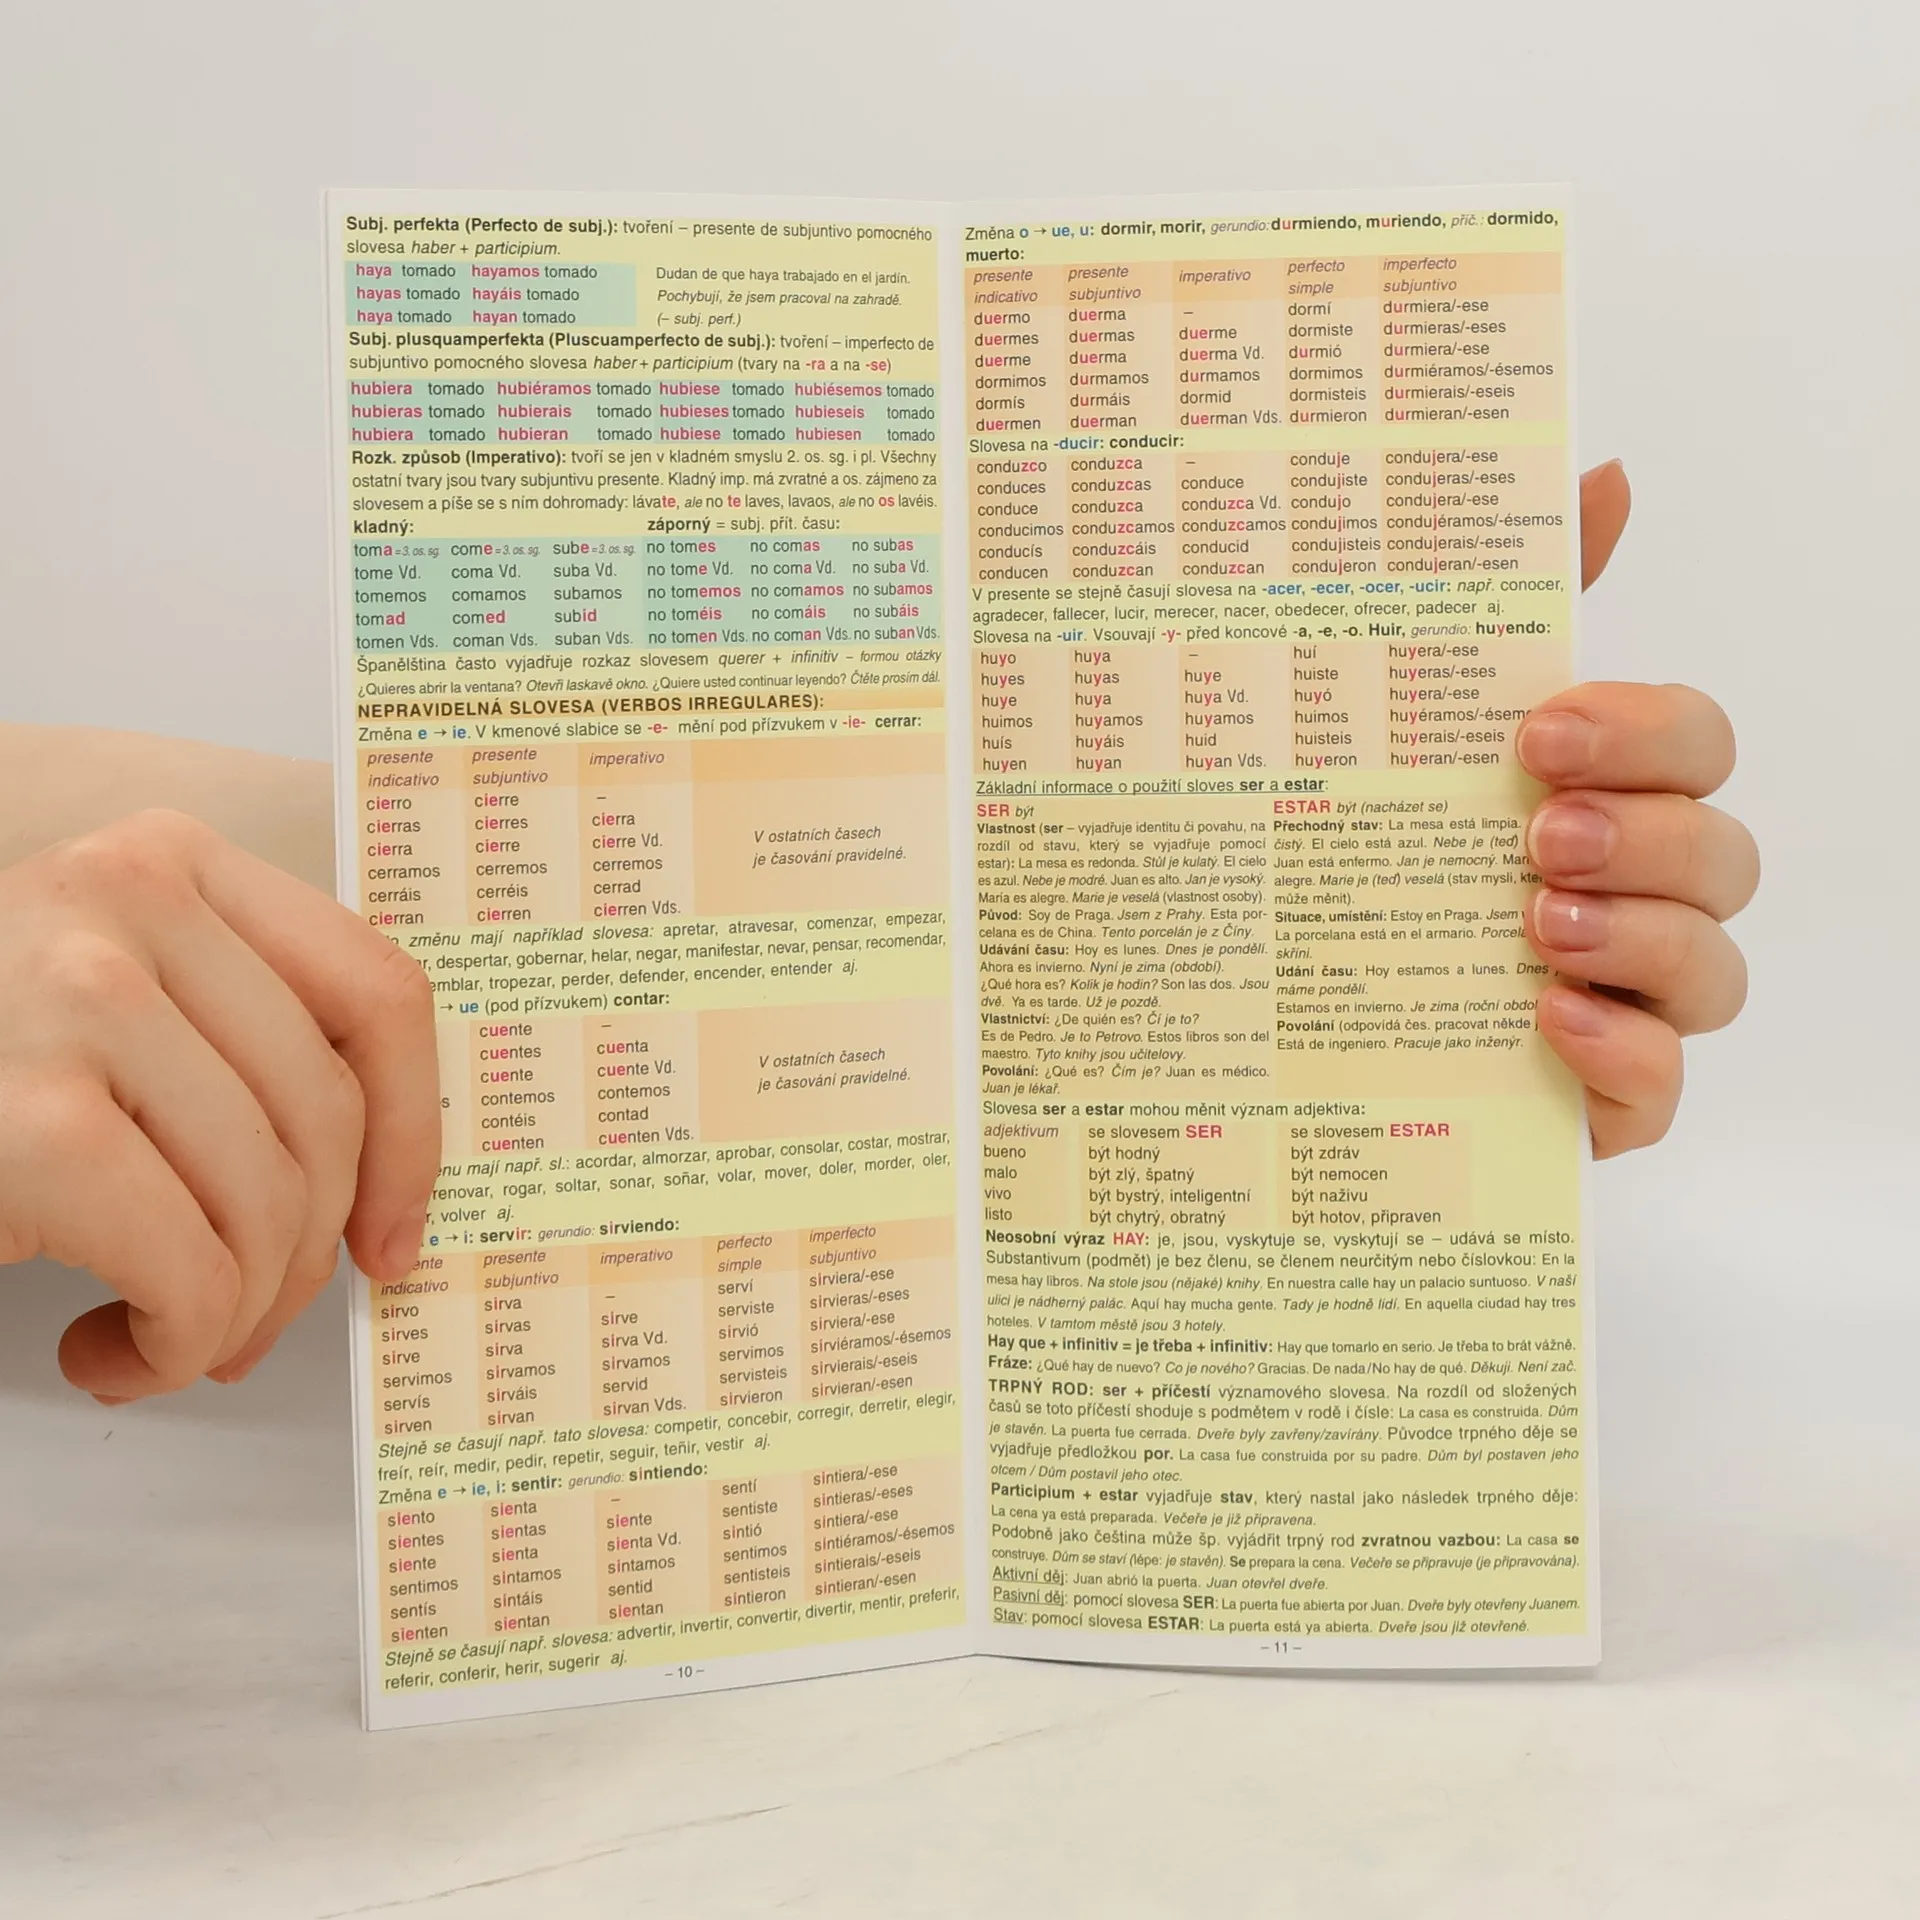 Subj. perfekta (Perfecto de subj.): tvoření – presente de subjuntivo pomocného
slovesa haber + participium.
haya tomado hayamos tomado
hayas tomado hayáis tomado
haya tomado hayan tomado
Dudan de que haya trabajado en el jardín.
Pochybují, že jsem pracoval na zahradě.
(– subj. perf.)
Subj. plusquamperfekta (Pluscuamperfecto de subj.): tvoření – imperfecto de
subjuntivo pomocného slovesa haber + participium (tvary na -ra a na -se)
hubiera tomado hubiéramos tomado hubiese tomado hubiésemos tomado
hubieras tomado hubierais tomado hubieses tomado hubieseis tomado
hubiera tomado hubieran tomado hubiese tomado hubiesen tomado
Rozk. způsob (Imperativo): tvoří se jen v kladném smyslu 2. os. sg. i pl. Všechny
ostatní tvary jsou tvary subjuntivu presente. Kladný imp. má zvratné a os. zájmeno za
slovesem a píše se s ním dohromady: lávate, ale no te laves, lavaos, ale no os lavéis.
kladný: záporný = subj. přít. času:
toma =3. os. sg. come =3. os. sg. sube =3. os. sg. no tomes no comas no subas
tome Vd. coma Vd. suba Vd. no tome Vd. no coma Vd. no suba Vd.
tomemos comamos subamos no tomemos no comamos no subamos
tomad comed subid no toméis no comáis no subáis
tomen Vds. coman Vds. suban Vds. no tomen Vds. no coman Vds. no suban Vds.
Španělština často vyjadřuje rozkaz slovesem querer + infinitiv – formou otázky
¿Quieres abrir la ventana? Otevři laskavě okno. ¿Quiere usted continuar leyendo? Čtěte prosím dál.
NEPRAVIDELNÁ SLOVESA (VERBOS IRREGULARES):
Změna e → ie. V kmenové slabice se -e- mění pod přízvukem v -ie- cerrar:
presente presente imperativo
indicativo subjuntivo
cierro cierre –
cierras cierres cierra
cierra cierre cierre Vd.
cerramos cerremos cerremos
cerráis cerréis cerrad
cierran cierren cierren Vds.
V ostatních časech
je časování pravidelné.
změnu mají například slovesa: apretar, atravesar, comenzar, empezar,
despertar, gobernar, helar, negar, manifestar, nevar, pensar, recomendar,
emblar, tropezar, perder, defender, encender, entender aj.
→ ue (pod přízvukem) contar:
cuente –
cuentes cuenta
cuente cuente Vd.
s contemos contemos
contéis contad
cuenten cuenten Vds.
V ostatních časech
je časování pravidelné.
mají např. sl.: acordar, almorzar, aprobar, consolar, costar, mostrar,
renovar, rogar, soltar, sonar, soñar, volar, mover, doler, morder, oler,
r, volver aj.
e → i: servir: gerundio: sirviendo:
ente presente imperativo perfecto imperfecto
indicativo subjuntivo simple subjuntivo
sirvo sirva – serví sirviera/-ese
sirves sirvas sirve serviste sirvieras/-eses
sirve sirva sirva Vd. sirvió sirviera/-ese
servimos sirvamos sirvamos servimos sirviéramos/-ésemos
servís sirváis servid servisteis sirvierais/-eseis
sirven sirvan sirvan Vds. sirvieron sirvieran/-esen
Stejně se časují např. tato slovesa: competir, concebir, corregir, derretir, elegir,
freír, reír, medir, pedir, repetir, seguir, teñir, vestir aj.
Změna e → ie, i: sentir: gerundio: sintiendo:
siento sienta – sentí sintiera/-ese
sientes sientas siente sentiste sintieras/-eses
siente sienta sienta Vd. sintió sintiera/-ese
sentimos sintamos sintamos sentimos sintiéramos/-ésemos
sentís sintáis sentid sentisteis sintierais/-eseis
sienten sientan sientan sintieron sintieran/-esen
Stejně se časují např. slovesa: advertir, invertir, convertir, divertir, mentir, preferir,
referir, conferir, herir, sugerir aj.
– 10 –
Změna o → ue, u: dormir, morir, gerundio: durmiendo, muriendo, příč.: dormido,
muerto:
presente presente imperativo perfecto imperfecto
indicativo subjuntivo simple subjuntivo
duermo duerma – dormí durmiera/-ese
duermes duermas duerme dormiste durmieras/-eses
duerme duerma duerma Vd. durmió durmiera/-ese
dormimos durmamos durmamos dormimos durmiéramos/-ésemos
dormís durmáis dormid dormisteis durmierais/-eseis
duermen duerman duerman Vds. durmieron durmieran/-esen
Slovesa na -ducir: conducir:
conduzco conduzca – conduje condujera/-ese
conduces conduzcas conduce condujiste condujeras/-eses
conduce conduzca conduzca Vd. condujo condujera/-ese
conducimos conduzcamos conduzcamos condujimos condujéramos/-ésemos
conducís conduzcáis conducid condujisteis condujerais/-eseis
conducen conduzcan conduzcan condujeron condujeran/-esen
V presente se stejně časují slovesa na -acer, -ecer, -ocer, -ucir: např. conocer,
agradecer, fallecer, lucir, merecer, nacer, obedecer, ofrecer, padecer aj.
Slovesa na -uir. Vsouvají -y- před koncové -a, -e, -o. Huir, gerundio: huyendo:
huyo huya – huí huyera/-ese
huyes huyas huye huiste huyeras/-eses
huye huya huya Vd. huyó huyera/-ese
huimos huyamos huyamos huimos huyéramos/-ésem
huís huyáis huid huisteis huyerais/-eseis
huyen huyan huyan Vds. huyeron huyeran/-esen
Základní informace o použití sloves ser a estar:
SER být
Vlastnost (ser – vyjadřuje identitu či povahu, na
rozdíl od stavu, který se vyjadřuje pomocí
estar): La mesa es redonda. Stůl je kulatý. El cielo
es azul. Nebe je modré. Juan es alto. Jan je vysoký.
María es alegre. Marie je veselá (vlastnost osoby).
Původ: Soy de Praga. Jsem z Prahy. Esta por-
celana es de China. Tento porcelán je z Číny.
Udávání času: Hoy es lunes. Dnes je pondělí.
Ahora es invierno. Nyní je zima (období).
¿Qué hora es? Kolik je hodin? Son las dos. Jsou
dvě. Ya es tarde. Už je pozdě.
Vlastnictví: ¿De quién es? Čí je to?
Es de Pedro. Je to Petrovo. Estos libros son del
maestro. Tyto knihy jsou učitelovy.
Povolání: ¿Qué es? Čím je? Juan es médico.
Juan je lékař.
ESTAR být (nacházet se)
Přechodný stav: La mesa está limpia.
čistý. El cielo está azul. Nebe je (teď)
Juan está enfermo. Jan je nemocný. Marí
alegre. Marie je (teď) veselá (stav mysli, kte
může měnit).
Situace, umístění: Estoy en Praga. Jsem
La porcelana está en el armario. Porcelá
skříni.
Udání času: Hoy estamos a lunes. Dnes
máme pondělí.
Estamos en invierno. Je zima (roční obdo
Povolání (odpovídá čes. pracovat někde
Está de ingeniero. Pracuje jako inženýr.
Slovesa ser a estar mohou měnit význam adjektiva:
adjektivum se slovesem SER se slovesem ESTAR
bueno být hodný být zdráv
malo být zlý, špatný být nemocen
vivo být bystrý, inteligentní být naživu
listo být chytrý, obratný být hotov, připraven
Neosobní výraz HAY: je, jsou, vyskytuje se, vyskytují se – udává se místo.
Substantivum (podmět) je bez členu, se členem neurčitým nebo číslovkou: En la
mesa hay libros. Na stole jsou (nějaké) knihy. En nuestra calle hay un palacio suntuoso. V naší
ulici je nádherný palác. Aquí hay mucha gente. Tady je hodně lidí. En aquella ciudad hay tres
hoteles. V tamtom městě jsou 3 hotely.
Hay que + infinitiv = je třeba + infinitiv: Hay que tomarlo en serio. Je třeba to brát vážně.
Fráze: ¿Qué hay de nuevo? Co je nového? Gracias. De nada/No hay de qué. Děkuji. Není zač.
TRPNÝ ROD: ser + příčestí významového slovesa. Na rozdíl od složených
časů se toto příčestí shoduje s podmětem v rodě i čísle: La casa es construida. Dům
je stavěn. La puerta fue cerrada. Dveře byly zavřeny/zavírány. Původce trpného děje se
vyjadřuje předložkou por. La casa fue construida por su padre. Dům byl postaven jeho
otcem / Dům postavil jeho otec.
Participium + estar vyjadřuje stav, který nastal jako následek trpného děje:
La cena ya está preparada. Večeře je již připravena.
Podobně jako čeština může šp. vyjádřit trpný rod zvratnou vazbou: La casa se
construye. Dům se staví (lépe: je stavěn). Se prepara la cena. Večeře se připravuje (je připravována).
Aktivní děj: Juan abrió la puerta. Juan otevřel dveře.
Pasivní děj: pomocí slovesa SER: La puerta fue abierta por Juan. Dveře byly otevřeny Juanem.
Stav: pomocí slovesa ESTAR: La puerta está ya abierta. Dveře jsou již otevřené.
– 11 –